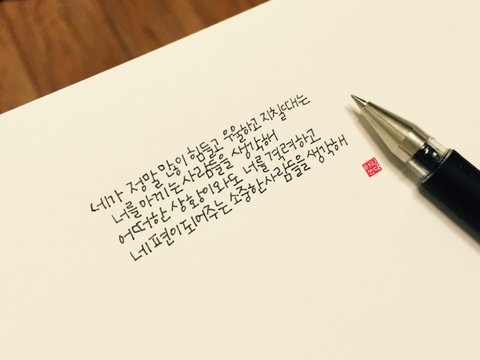 네가 정말 많이 힘들고 우울하고 지칠때는
너를 아끼는 사람들을 생각해
어떠한 상황이와도 너를 격려하고
네편이되어주는 소중한사람들을 생각해